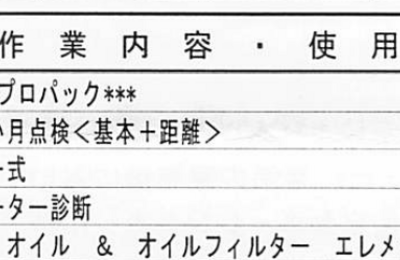 作業内容・使用
プロパック***
月点検<基本+距離>
一式
ーター診断
オイル & オイルフィルター エレメ